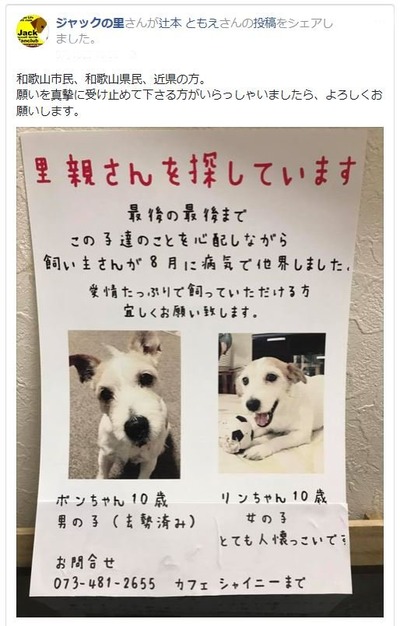 ジャックの里さんが辻本 ともえさんの投稿をシェアし
ました。
和歌山市民、和歌山県民、近県の方。
願いを真摯に受け止めて下さる方がいらっしゃいましたら、よろしくお
願いします。
里親さんを探しています
最後の最後まで
この子達のことを心配しながら
飼い主さんが8月に病気で他界しました。
愛情たっぷりで飼っていただける方
宜しくお願い致します。
ボンちゃん10歳
男の子(去勢済み)
リンちゃん10歳
女の子
とても人懐っこいです
お問合せ
073-481-2655 カフェ シャイニーまで